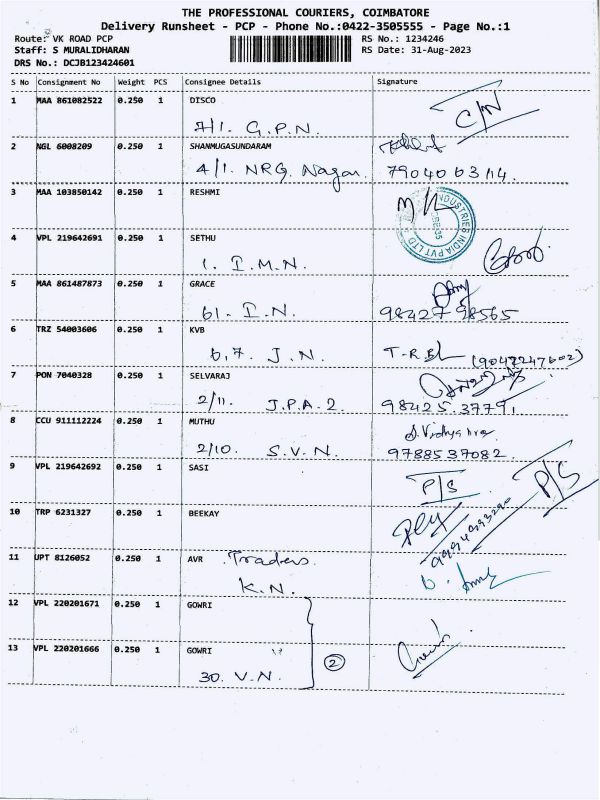 THE PROFESSIONAL COURIERS, COIMBATORE
Delivery Runsheet - PCP - Phone No.:0422-3505555 - Page No.:1
Route: VK ROAD PCP RS No.: 1234246
Staff: S MURALIDHARAN RS Date: 31-Aug-2023
DRS No.: DCJB123424601
S No Consignment No Weight PCS Consignee Details Signature
1 MAA 861082522 0.250 1 DISCO C/N
7/1. G.P.N.
2 NGL 6008209 0.250 1 SHANMUGASUNDARAM
4/1. NRG. Nagar. 7904003114.
3 MAA 103850142 0.250 1 RESHMI
INDUSTRIES INDIA PVT LTD
4 VPL 219642691 0.250 1 SETHU
1. I.M.N.
5 MAA 861487873 0.250 1 GRACE
61. I.N. 98427 98565
6 TRZ 54003606 0.250 1 KVB
6,7. J.N. (9047247602)
7 PON 7040328 0.250 1 SELVARAJ
2/11. J.P.A.2. 98425 37791
8 CCU 911112224 0.250 1 MUTHU
2/10. S.V.N. 9788537082.
9 VPL 219642692 0.250 1 SASI P/S P/S
10 TRP 6231327 0.250 1 BEEKAY
11 UPT 8126052 0.250 1 AVR Traders
K.N.
12 VPL 220201671 0.250 1 GOWRI
13 VPL 220201666 0.250 1 GOWRI 2
30. V.N.